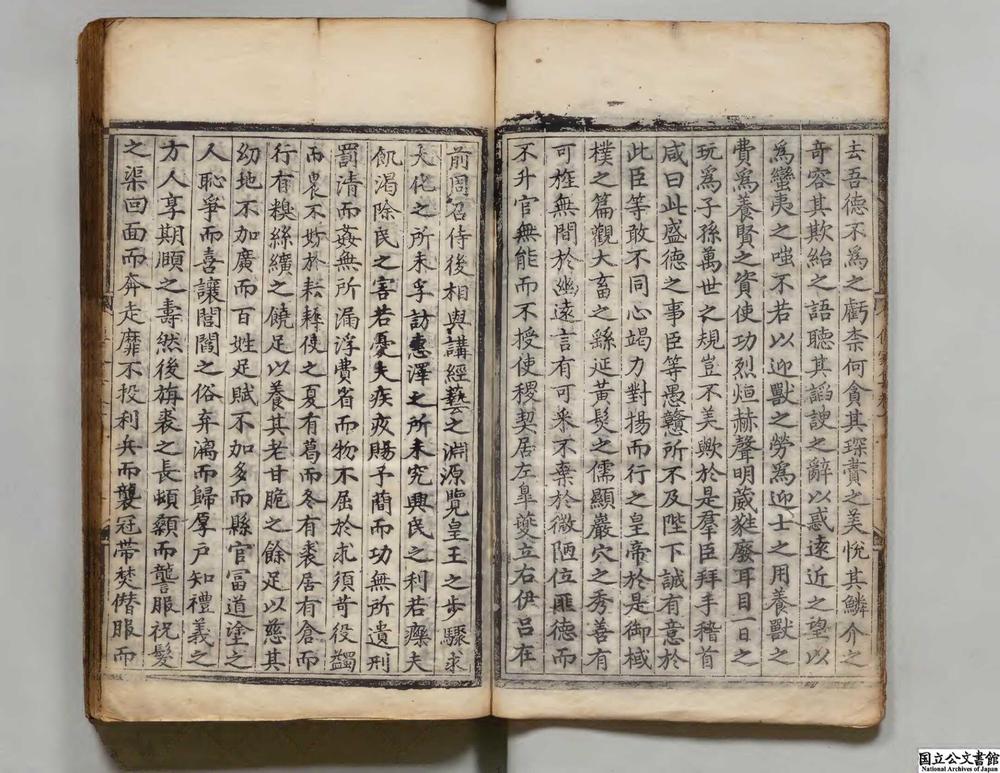 去吾德不為之虧柰何貪其琛賮之美悅其鱗介之
奇容其欺紿之語聽其謟諛之辭以惑遠近之望以
為蠻夷之嗤不若以迎獸之勞為迎士之用養獸之
費為養賢之資使功烈烜赫聲明葳甤廢耳目一日之
玩為子孫萬世之規豈不美歟於是羣臣拜手稽首
咸曰此盛德之事臣等愚戇所不及陛下誠有意於
此臣等敢不同心竭力對揚而行之皇帝於是御棫
樸之篇觀大畜之繇延黃髮之儒顯巖穴之秀善有
可旌無間於幽遠言有可釆不棄於微陋位匪德而
不升官無能而不授使稷契居左臯夔立右伊呂在
前周召侍後相與講經藝之淵源覽皇王之步驟求
大化之所未孚訪惠澤之所未究興民之利若療夫
飢渴除民之害若憂夫疾疢賜予簡而功無所遺刑
罰清而姦無所漏浮費省而物不屈於求須苛役蠲
而農不妨於耘耨使之夏有葛而冬有裘居有倉而
行有糗絲纊之饒足以養其老甘脆之餘足以慈其
幼地不加廣而百姓足賦不加多而縣官富道塗之
人恥爭而喜讓閭閻之俗弃漓而歸厚戶知禮義之
方人享期頤之壽然後旃裘之長頓顙而讋服祝髮
之渠回面而奔走靡不投利兵而襲冠帶焚僭服而
国立公文書館
National Archives of Japan